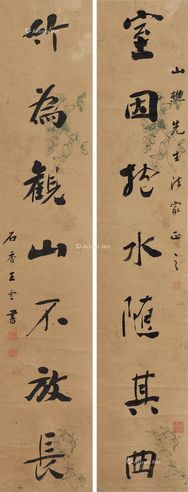 山樵先生法家正之
室因枕水随其曲
竹為觀山不放長
石香王雲書